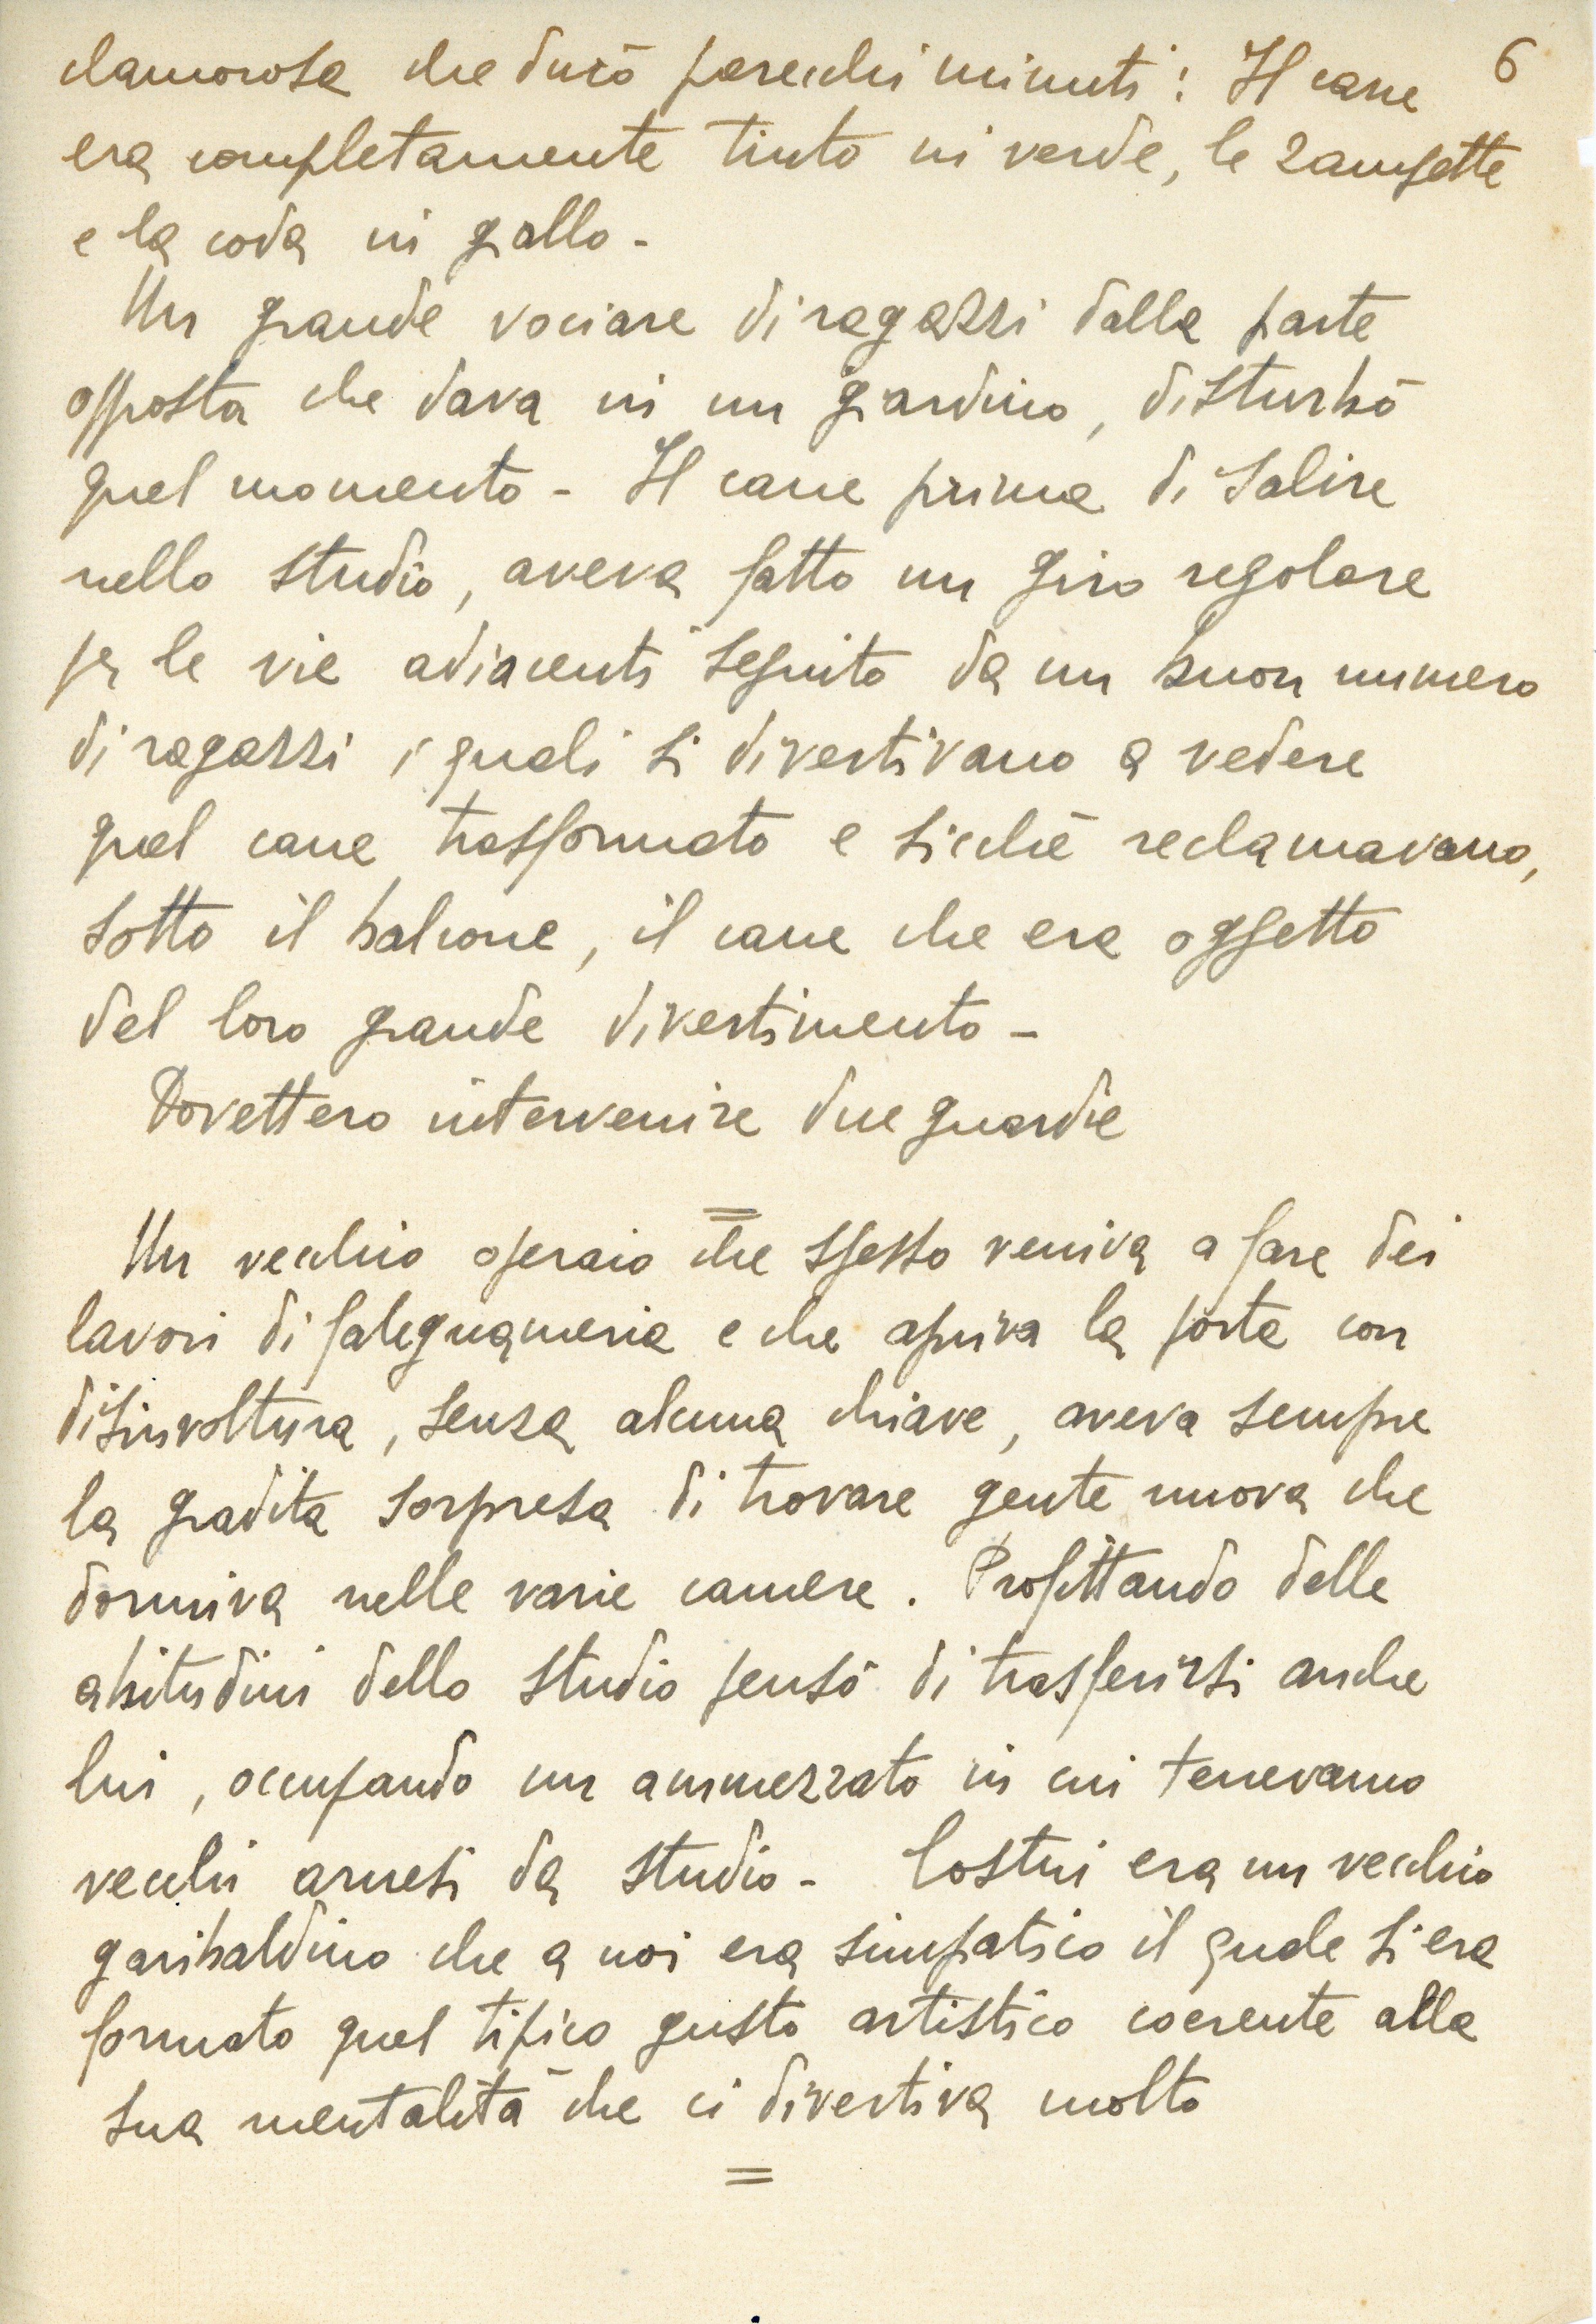 6
clamorosa che durò parecchi minuti: Il cane
era completamente tinto in verde, le zampette
e la coda in giallo -
Un grande vociare di ragazzi dalla parte
opposta che dava in un giardino, disturbò
quel momento - Il cane prima di salire
nello studio, aveva fatto un giro regolare
per le vie adiacenti seguito da un buon numero
di ragazzi i quali si divertivano a vedere
quel cane trasformato e sicchè reclamavano,
sotto il balcone, il cane che era oggetto
del loro grande divertimento -
Dovettero intervenire due guardie
=
Un vecchio operaio che spesso veniva a fare dei
lavori di falegnameria e che apriva la porta con
disinvoltura, senza alcuna chiave, aveva sempre
la gradita sorpresa di trovare gente nuova che
dormiva nelle varie camere. Profittando delle
abitudini dello studio pensò di trasferirsi anche
lui, occupando un ammezzato in cui tenevamo
vecchi arnesi da studio - Costui era un vecchio
garibaldino che a noi era simpatico il quale si era
formato quel tipico gusto artistico coerente alla
sua mentalità che ci divertiva molto
=